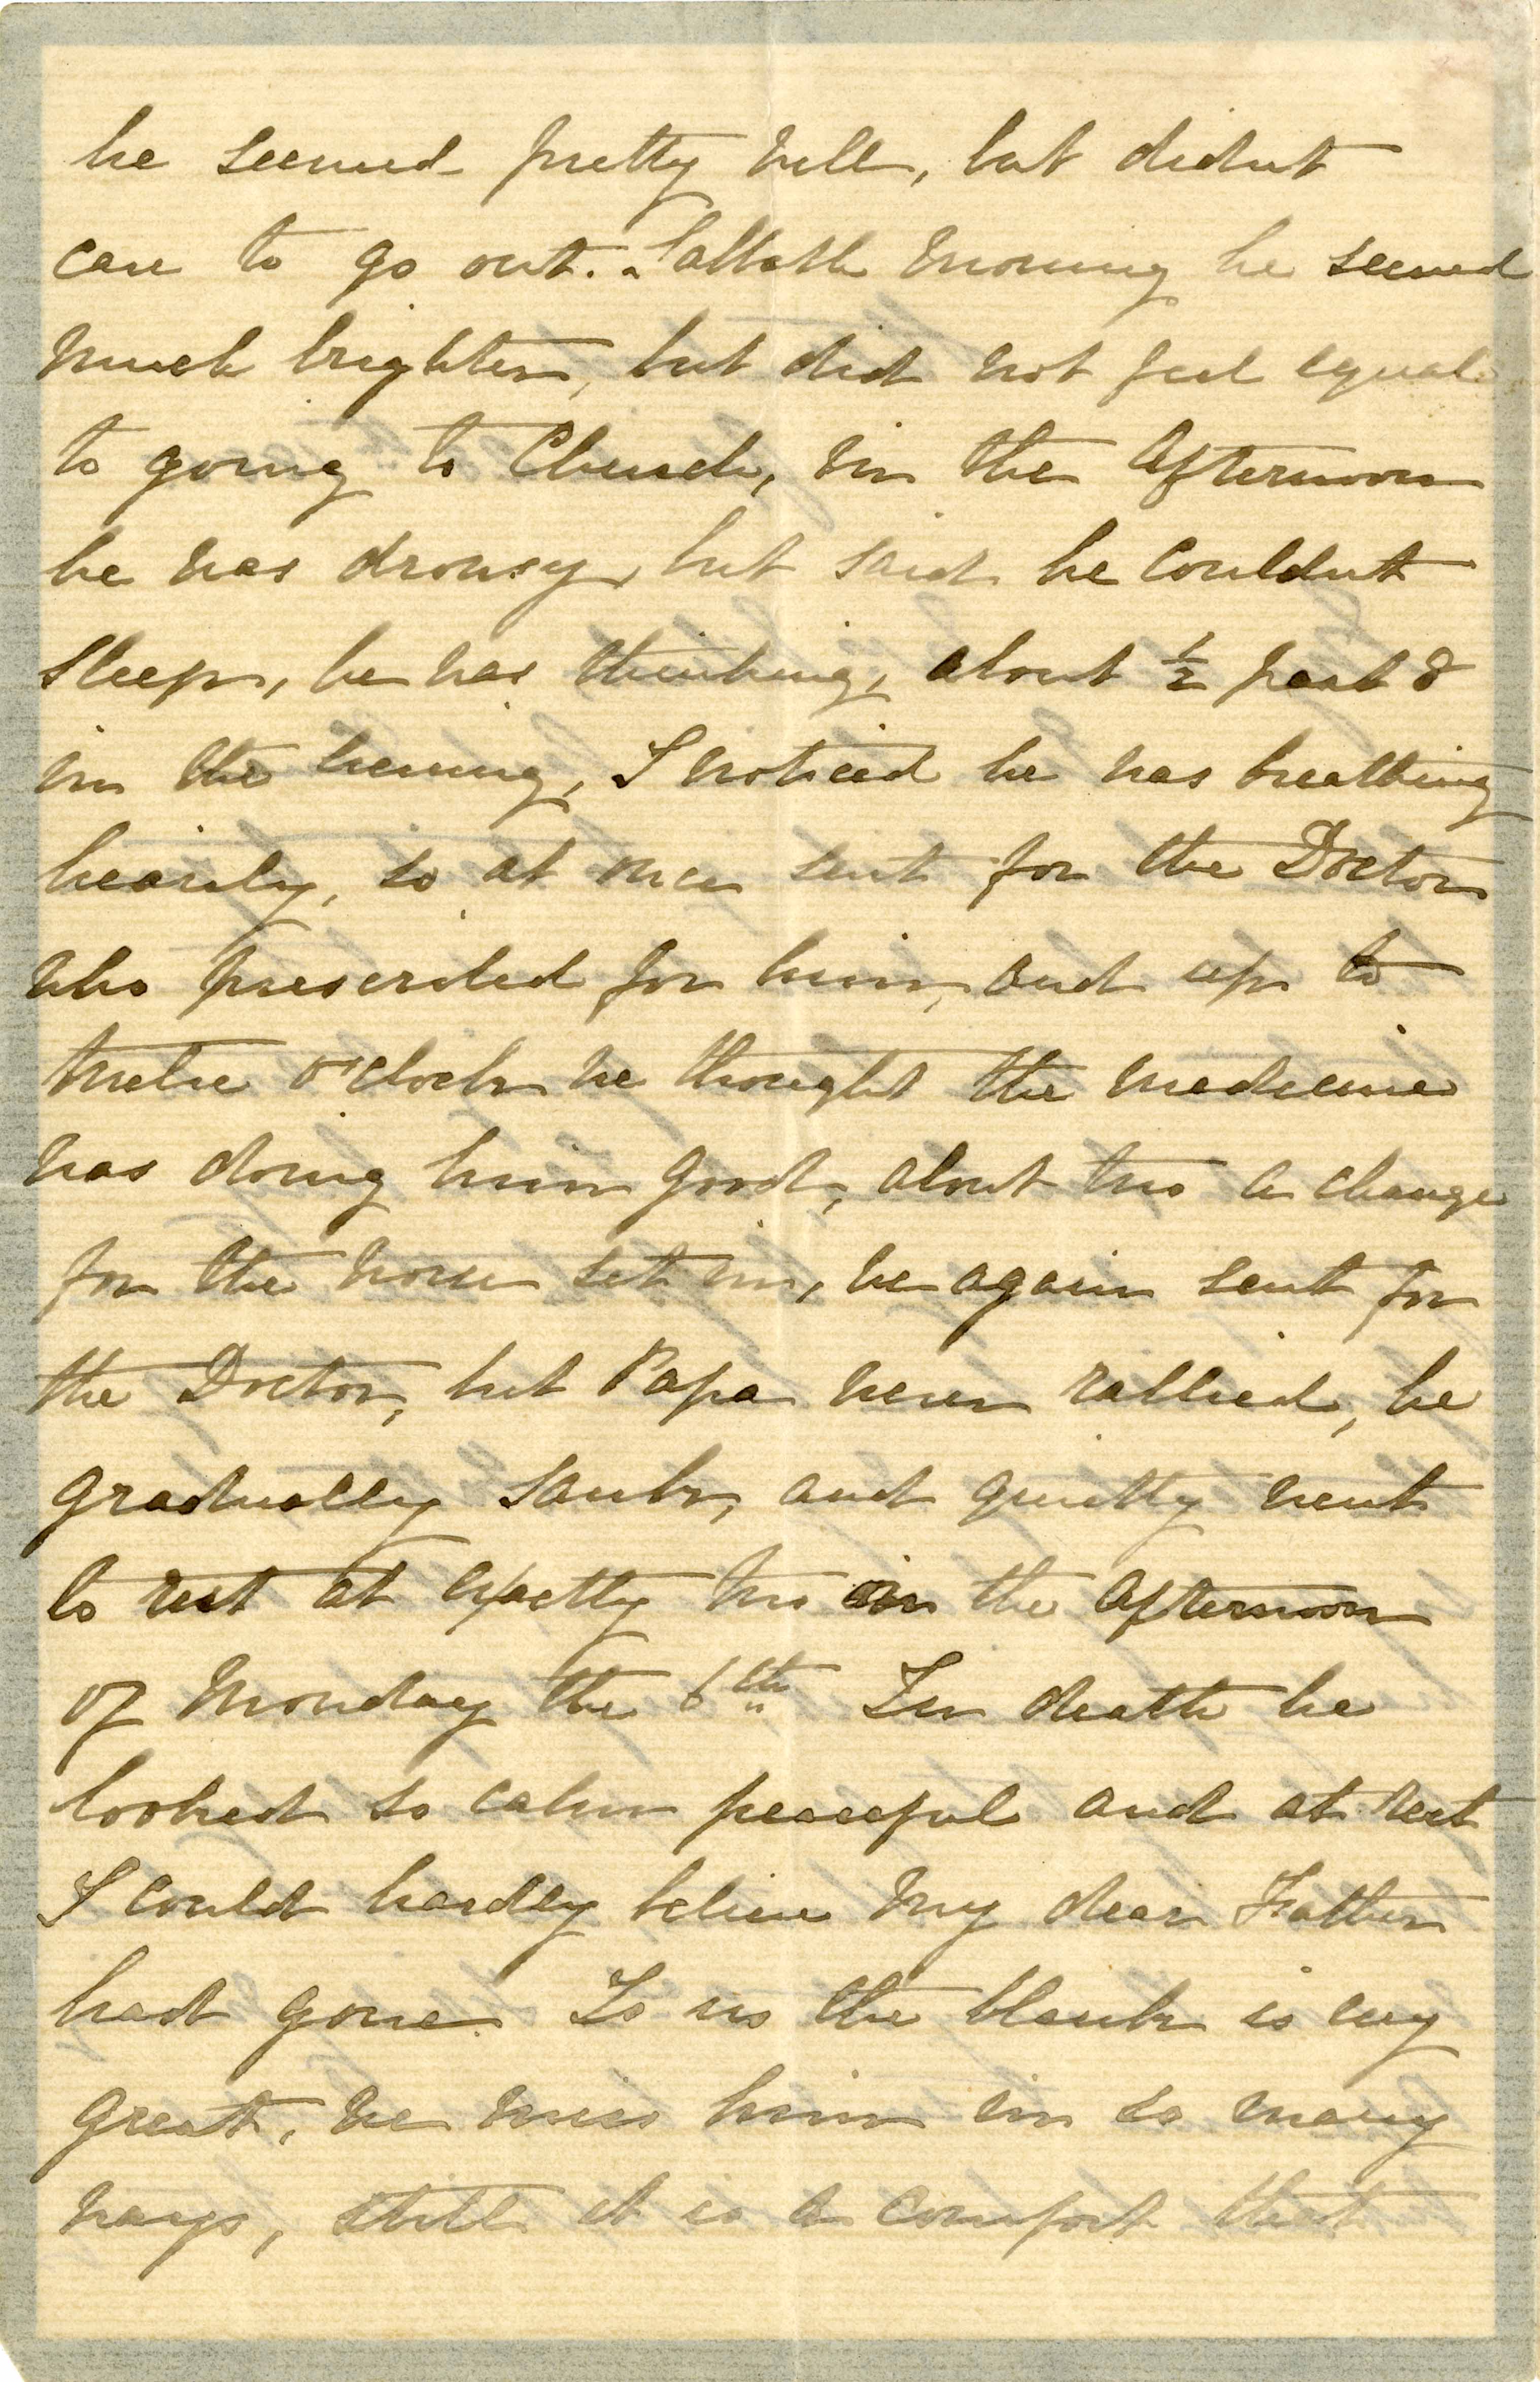 he seemed pretty well, but didnt
care to go out. Sabbath morning he seemed
much brighter, but did not feel equal
to going to Church, in the afternoon
he was drowsy, but said he couldnt
sleep, he was thinking, about ½ past 8
in the evening, I noticed he was breathing
heavily, so at once sent for the Doctor
who prescribed for him, and up to
twelve o'clock we thought the medicine
was doing him good, about two a change
for the worse set in, we again sent for
the Doctor, but Papa never rallied, he
gradually sank, and quietly went
to rest at exactly two in the afternoon
of Monday the 6th In death he
looked so calm peaceful and at rest
I could hardly believe my dear Father
had gone. To us the blank is very
great, we miss him in so many
ways, still it is a comfort that